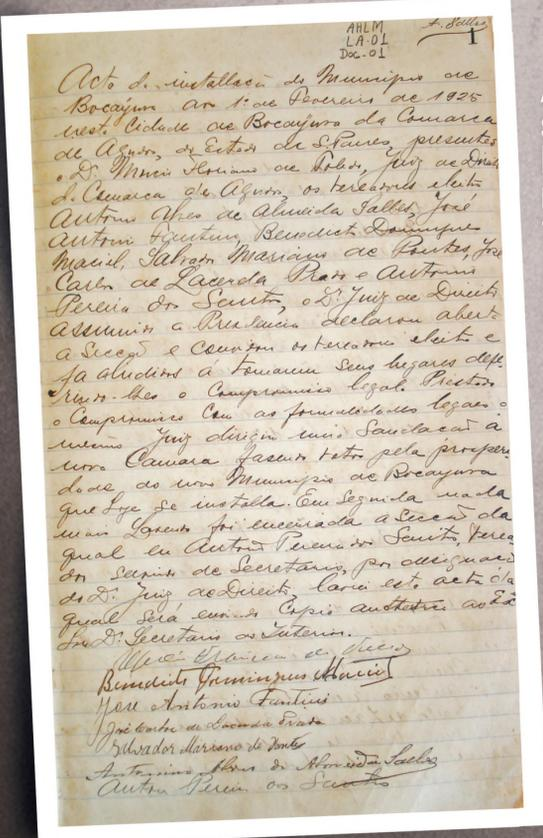 AHLM
LA.01
Doc.01
A. Salles
1
Acta de installação do Municipio de
Bocayuva ao 1º de Fevereiro de 1925
nesta Cidade de Bocayuva da Comarca
de Agudos, do Estado de S. Paulo, presentes
o Dr. Mario Floriano de Toledo, Juiz de Direito
da Comarca de Agudos, os vereadores eleitos
Antonio Alves de Almeida Salles, José
Antonio Fantini, Benedicto Domingues
Maciel, Salvador Mariano de Pontes, José
Carlos de Lacerda Prado e Antonio
Pereira dos Santos, o Dr. Juiz de Direito
assumindo a Presidencia declarou aberta
a Secção e convidou os vereadores eleitos e
já alludidos a tomarem seus lugares defe-
rindo-lhes o Compromisso legal. Prestado
o Compromisso com as formalidades legaes o
mesmo Juiz dirigiu uma Saudação á
nova Camara fasendo votos pela prosperi-
dade do novo Municipio de Bocayuva
que hoje se installa. Em seguida nada
mais havendo foi encerrada a Secção da
qual eu Antonio Pereira dos Santos, verea-
dor servindo de Secretario, por designação
do Dr. Juiz de Direito, lavrei esta acta da
qual será enviado Copia authentica ao
Dr. Secretario do Interior.
Benedicto Domingues Maciel
José Antonio Fantini
José Carlos de Lacerda Prado
Salvador Mariano de Pontes
Antonio Alves de Almeida Salles
Antonio Pereira dos Santos